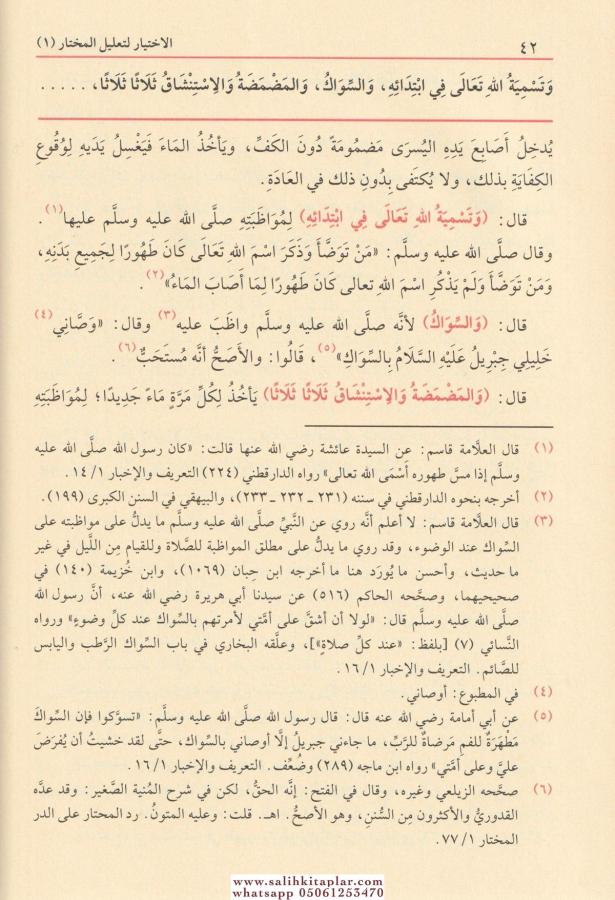 ٤٢ الاختيار لتعليل المختار (١)
وَتَسْمِيَةُ اللهِ تَعَالَى فِي ابْتِدَائِهِ، وَالسِّوَاكُ، وَالمَضْمَضَةُ وَالِاسْتِنْشَاقُ ثَلَاثًا ثَلَاثًا، .....
يُدخِلُ أَصَابِعَ يَدِهِ اليُسرَى مَضمُومَةً دُونَ الكَفِّ، ويَأخُذُ المَاءَ فَيَغْسِلُ يَدَيهِ لِوُقُوعِ
الكِفَايَةِ بذلك، ولا يُكتَفى بِدُونِ ذلك في العَادَةِ.
قال: (وَتَسْمِيَةُ اللهِ تَعَالَى فِي ابْتِدَائِهِ) لِمُوَاظَبَتِهِ صلَّى الله عليه وسلَّم عليها(١).
وقال صلَّى الله عليه وسلَّم: «مَنْ تَوَضَّأَ وَذَكَرَ اسْمَ اللهِ تَعَالَى كَانَ طَهُورًا لِجَمِيعِ بَدَنِهِ،
وَمَنْ تَوَضَّأَ وَلَمْ يَذْكُرِ اسْمَ اللهِ تعالى كَانَ طَهُورًا لِمَا أَصَابَ المَاءُ»(٢).
قال: (وَالسِّوَاكُ) لأنَّه صلَّى الله عليه وسلَّم واظَبَ عليه(٣) وقال: «وَصَّانِي(٤)
خَلِيلِي جِبْرِيلُ عَلَيْهِ السَّلَامُ بِالسِّوَاكِ»(٥)، قَالُوا: والأَصَحُّ أنَّه مُستَحَبٌّ(٦).
قال: (وَالمَضْمَضَةُ وَالِاسْتِنْشَاقُ ثَلَاثًا ثَلَاثًا) يَأخُذُ لِكُلِّ مَرَّةٍ مَاءً جَدِيدًا؛ لِمُوَاظَبَتِهِ
(١) قال العلَّامة قاسم: عن السيدة عائشة رضي الله عنها قالت: «كان رسول الله صلَّى الله عليه
وسلَّم إذا مسَّ طهوره أَسْمَى الله تعالى» رواه الدارقطني (٢٢٤) التعريف والإخبار ١/ ١٤.
(٢) أخرجه بنحوه الدارقطني في سننه (٢٣١ ـ ٢٣٢ ـ ٢٣٣)، والبيهقي في السنن الكبرى (١٩٩).
(٣) قال العلامة قاسم: لا أعلم أنَّه روي عن النَّبيِّ صلَّى الله عليه وسلَّم ما يدلُّ على مواظبته على
السِّواك عند الوضوء، وقد روي ما يدلُّ على مطلق المواظبة للصَّلاة وللقيام مِن اللَّيل في غير
ما حديث، وأحسن ما يُورَد هنا ما أخرجه ابن حِبان (١٠٦٩)، وابن خُزيمة (١٤٠) في
صحيحيهما، وصحَّحه الحاكم (٥١٦) عن سيدنا أبي هريرة رضي الله عنه، أنَّ رسول الله
صلَّى الله عليه وسلَّم قال: «لولا أن أشقَّ على أمَّتي لأمرتهم بالسِّواك عند كلِّ وضوءٍ» ورواه
النَّسائي (٧) [بلفظ: «عند كلِّ صلاةٍ»]، وعلَّقه البخاري في باب السِّواك الرَّطب واليابس
للصَّائم. التعريف والإخبار ١/ ١٦.
(٤) في المطبوع: أوصاني.
(٥) عن أبي أمامة رضي الله عنه قال: قال رسول الله صلَّى الله عليه وسلَّم: «تسوَّكوا فإن السِّواكَ
مَطْهَرَةٌ للفمِ مَرضاةٌ للرَّبِّ، ما جاءني جبريلُ إلَّا أوصاني بالسِّواك، حتَّى لقد خشيتُ أن يُفرَضَ
عليَّ وعلى أمَّتي» رواه ابن ماجه (٢٨٩) وضُعِّف. التعريف والإخبار ١/ ١٦.
(٦) صحَّحه الزيلعي وغيره، وقال في الفتح: إنَّه الحقُّ، لكن في شرح المُنية الصَّغير: وقد عدَّه
القدوريُّ والأكثرون مِن السُّنن، وهو الأصحُّ. اهـ. قلت: وعليه المتونُ. رد المحتار على الدر
المختار ١/ ٧٧.
www.salihkitaplar.com
whatsapp 05061253470